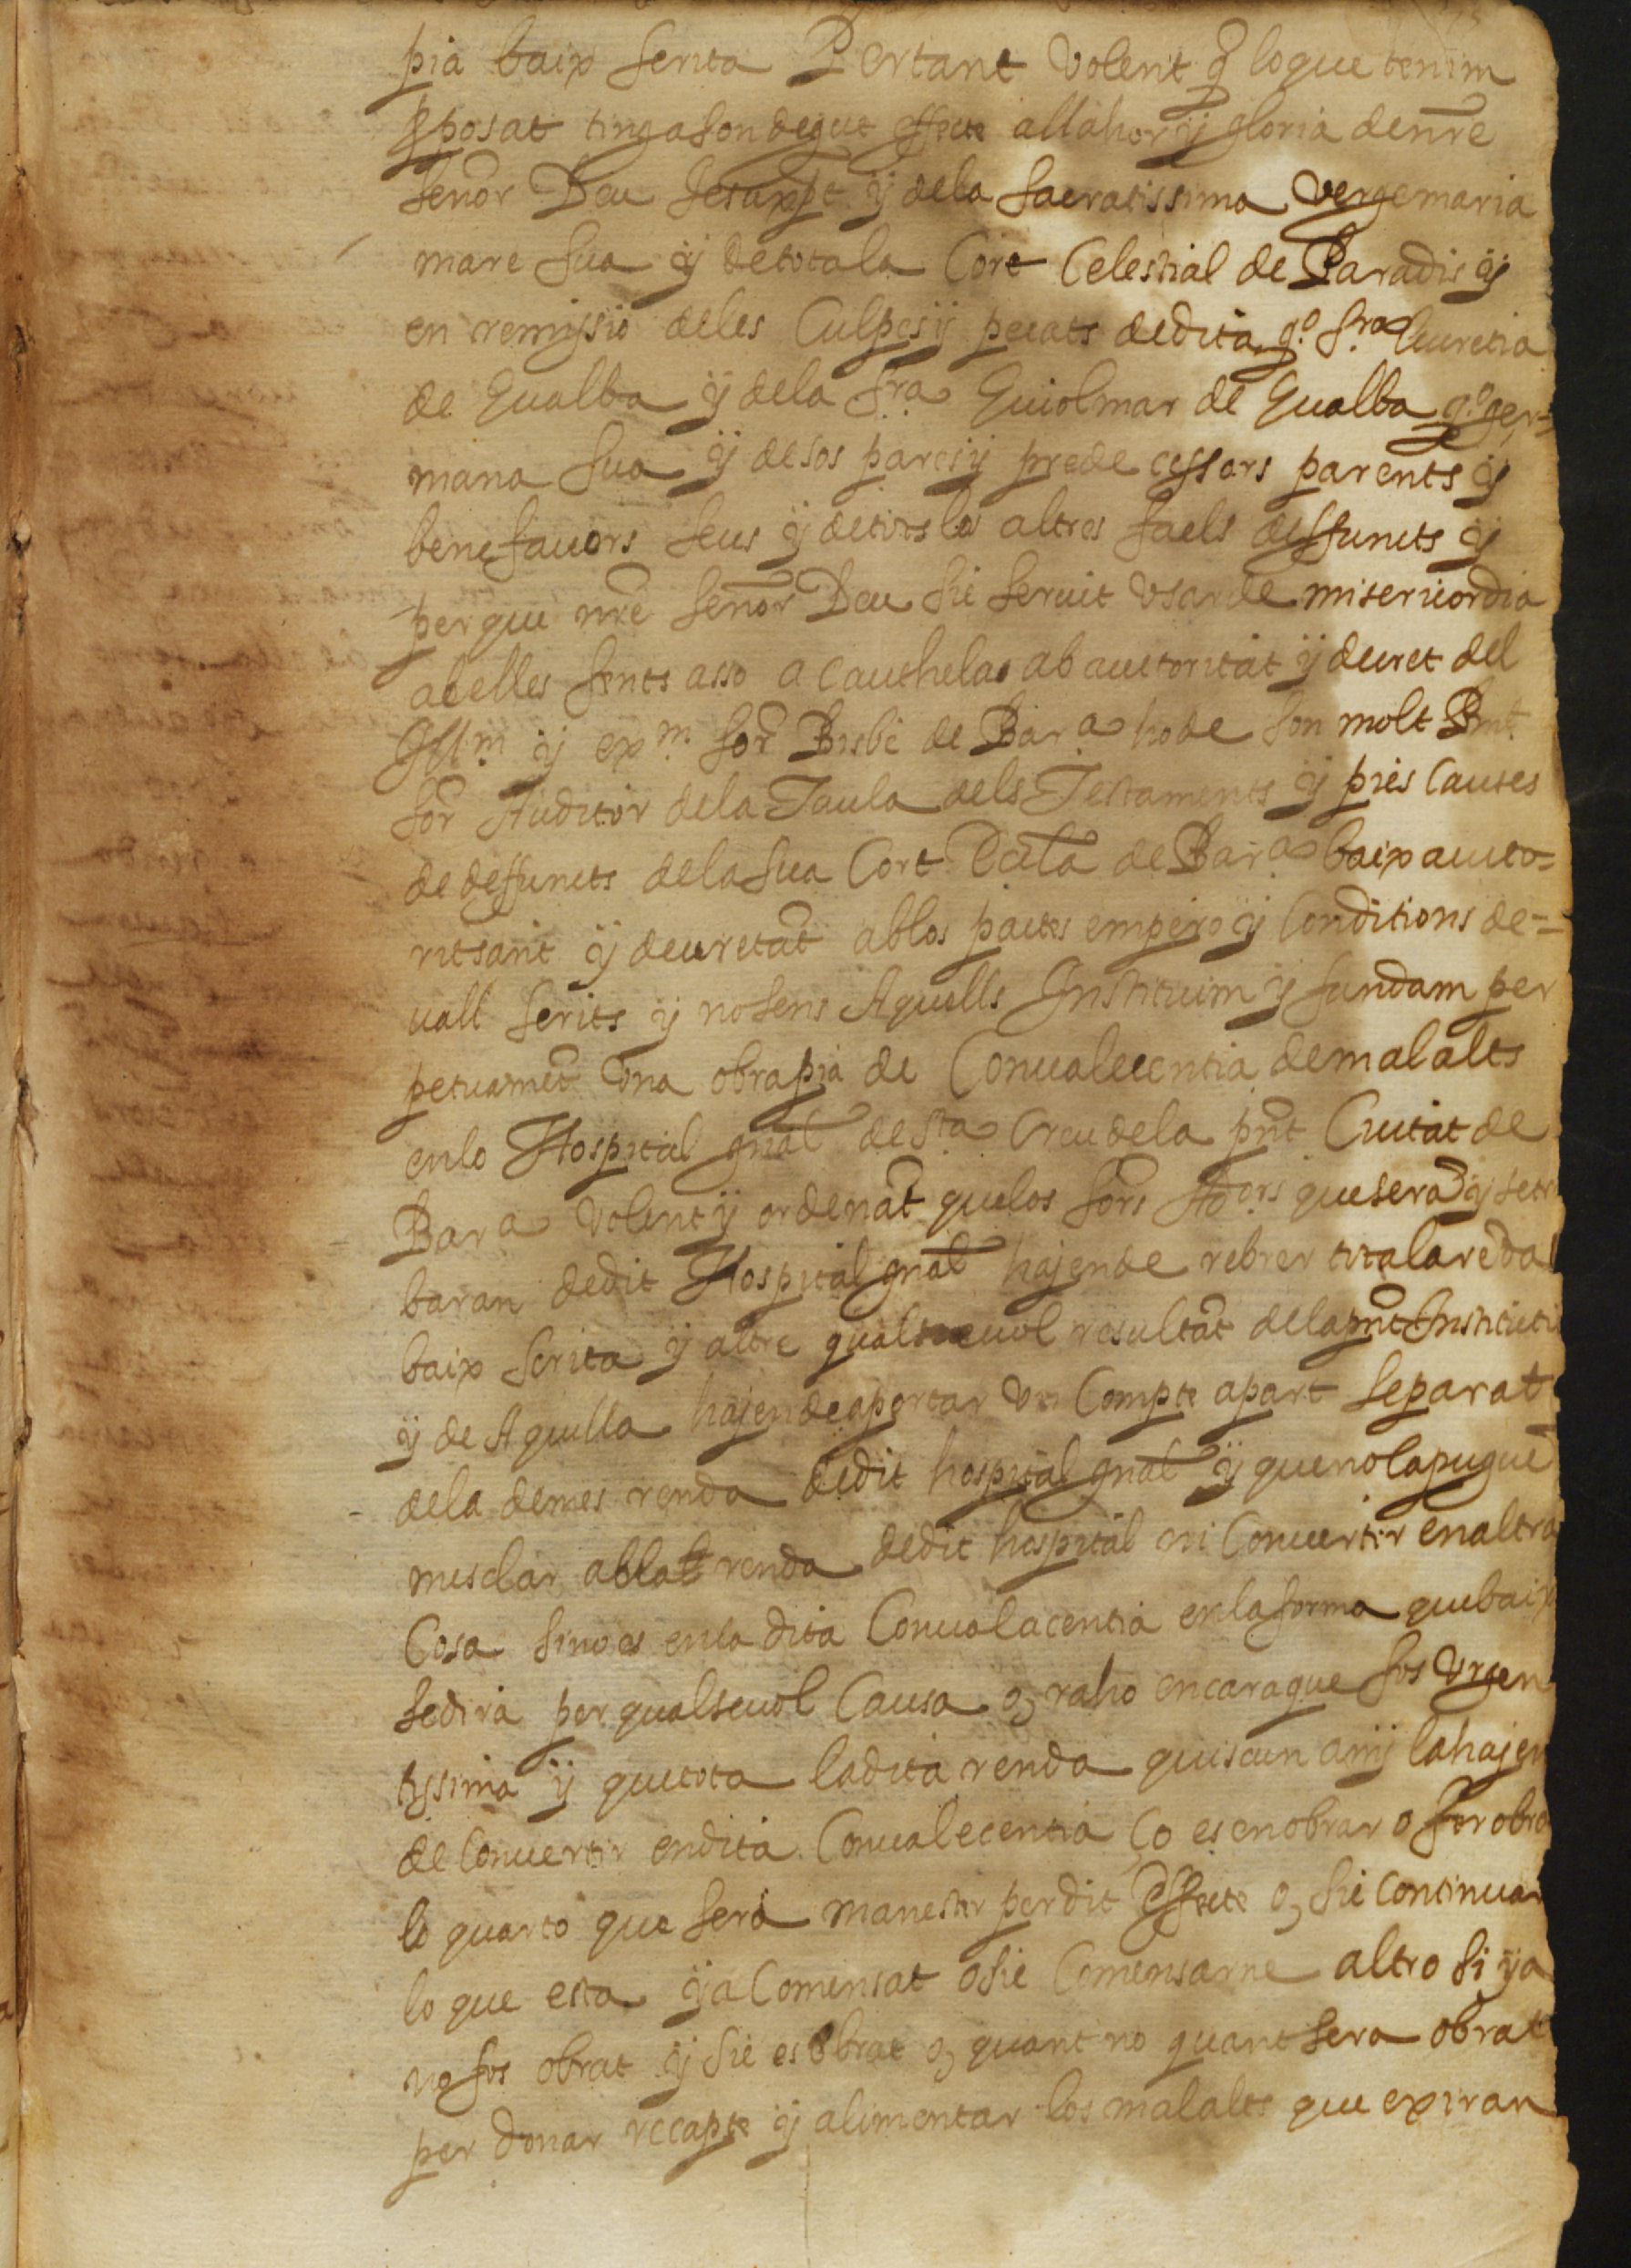 pia baix scrita Pertant Volent q̃ lo que tenim
pposat tinga son degut effecte allahor ÿ gloria de nr̃e
señor Deu Jesuxpt ÿ dela Sacratissima Vergemaria
mare sua ÿ de tota la Cort Celestial de Paradis ÿ
en remissio deles Culpes ÿ pecats dedita qº Sra Lucretia
de Gualba ÿ dela Sra Guiolmar de Gualba qº ger-
mana sua ÿ de sos pares ÿ predecessors parents ÿ
benefactors seus ÿ de tots los altres faels deffuncts ÿ
per que nr̃e señor Deu sie seruit Vsar de misericordia
ab elles fents asso a cauthela ab auctoritat ÿ decret del
Illm ÿ exm Sor̃ Bisbe de Bar.a ho de son molt Rnt
Sor̃ Auditor dela Taula dels Testaments ÿ pies Causes
de deffuncts dela sua Cort Ecc̃la de Bar.a baix aucto=
ritsant ÿ decretãt ab los pactes empero ÿ Conditions de=
uall scrits ÿ no sens Aquells Instituim ÿ fundam per
petuamẽt vna obra pia de Conualecentia de malalts
en lo Hospital gñal de Sta Creu dela pñt Ciutat de
Bar.a Volent ÿ ordenãt que los Sors̃ Adors que serã ÿ se tro
baran dedit Hospital gñal hajen de rebrer tota la rẽda
baix scrita ÿ altre qualseuol resultãt dela pñt Institutio
ÿ de Aquella hajen de aportar Vn Compte apart separat
dela demes renda dedit hospital gñal ÿ que no la puguẽ
mesclar ab la renda dedit hospital ni Conuertir en altra
Cosa sino es en la dita Conualacentia en la forma que baix
se dira per qualseuol Causa o, raho encara que fos Vrgen
tissima ÿ que tota la dita renda quiscun anÿ la hajen
de Conuertir en dita Conualecentia ço es en obrar o fer obra
lo quarto que sera manester per dit effecte o, sie continuar
lo que esta ÿa Comensat o sie Comensarne altro si ÿa
no fos obrat ÿ sie es obrat o, quant no quant sera obrat
per donar recapte ÿ alimentar los malalts que exiran